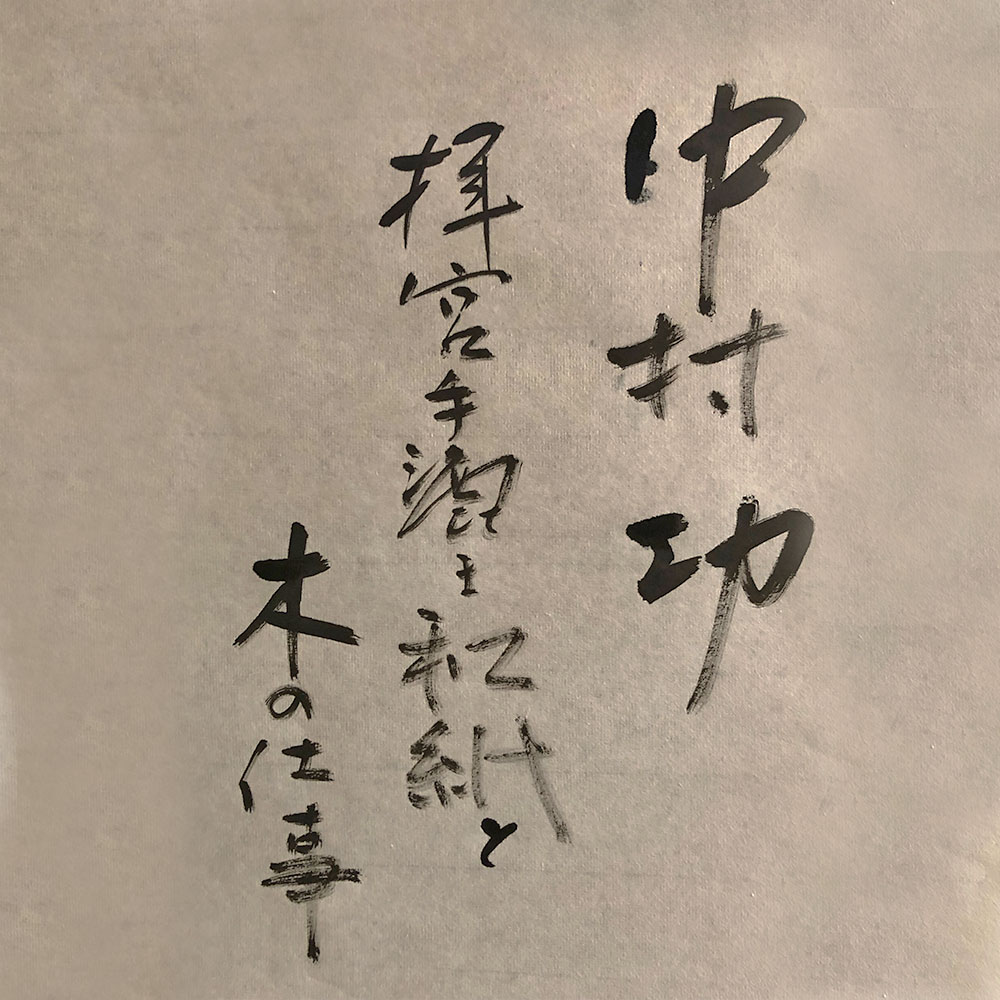 中村功
拝宮手漉き和紙と
木の仕事